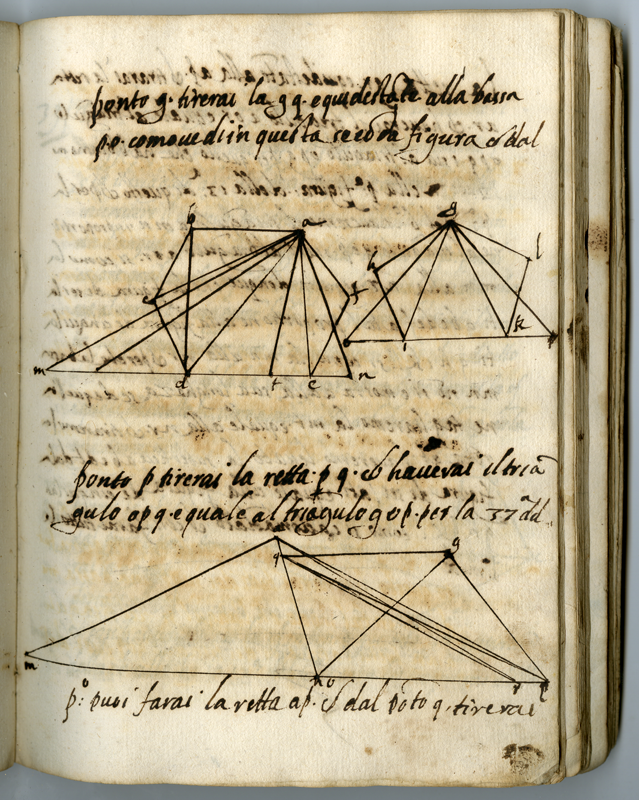 ponto g. tirerai la g q. equidestāte alla bassa
p.o. come vedi in questa secōda figura & dal
b a g
h l
c f
m d t e n i k
ponto p tirerai la retta. p q. & haverai il triā
gulo o p q. equale al triāgulo g o p. per la 37ª dil
q g
m n o r p
pº: puoi farai la retta a p. & dal pōto q. tirerai